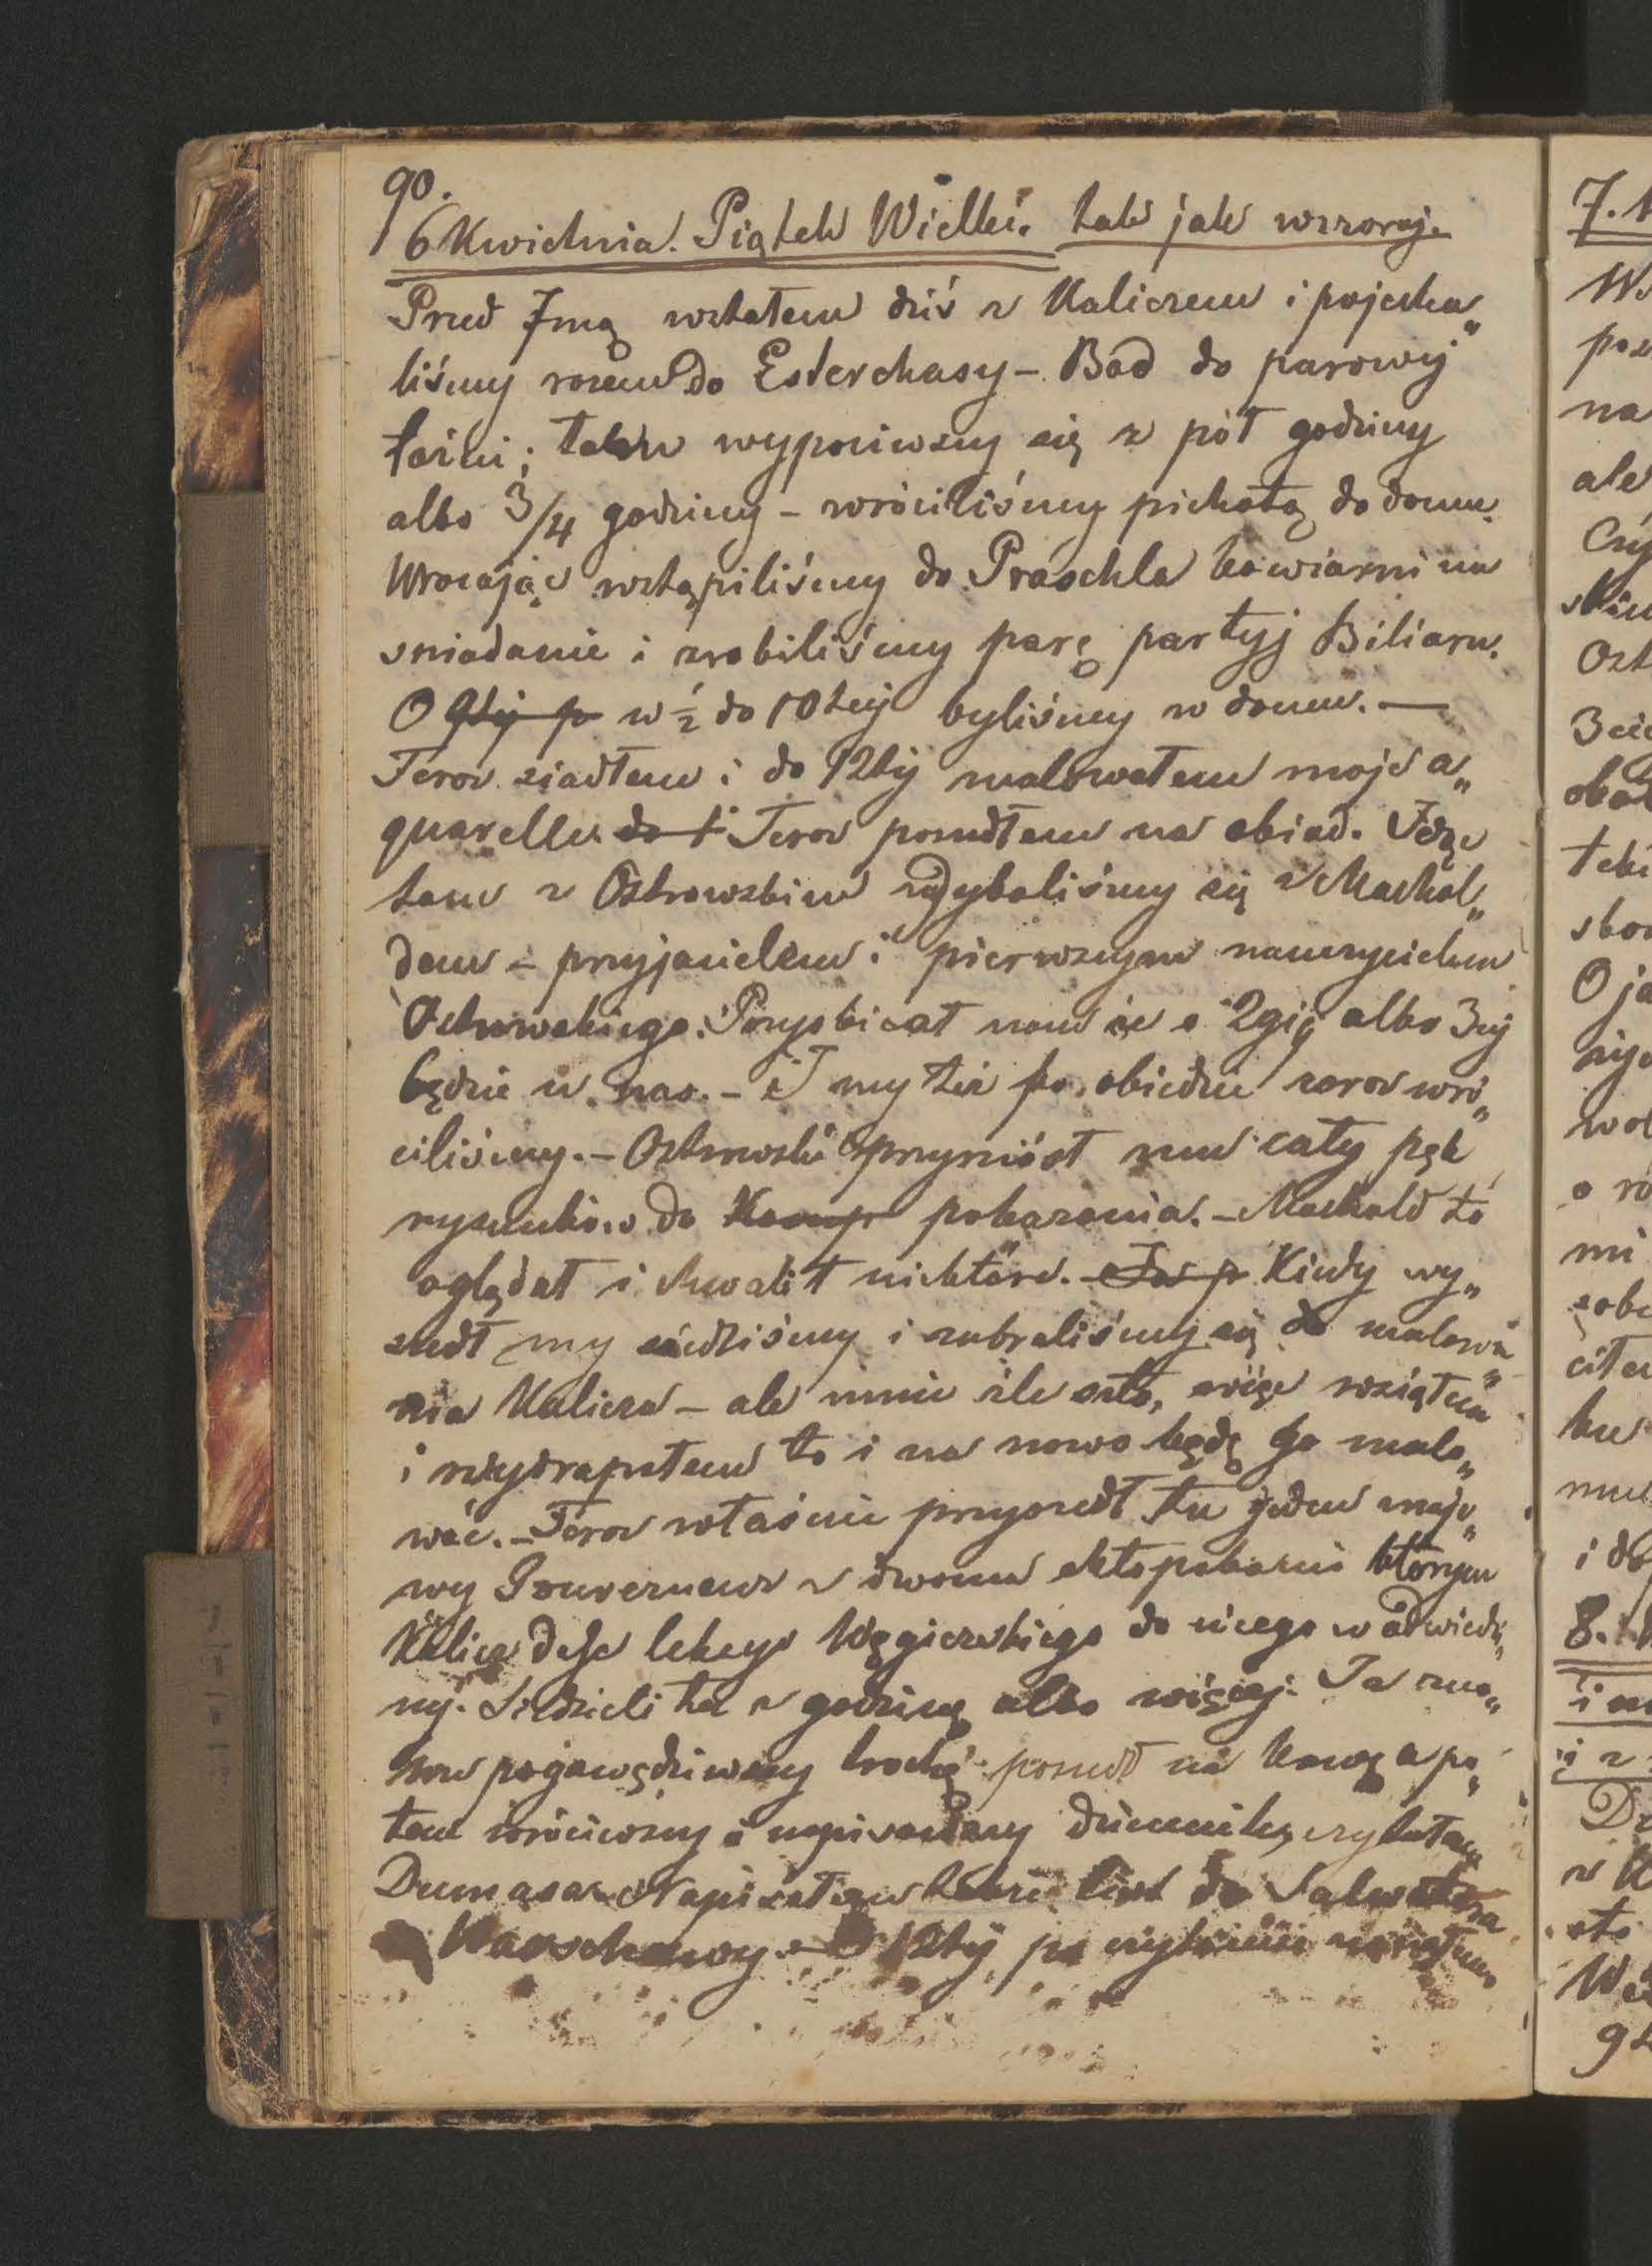 90.
6 Kwietnia. Piątek Wielki. tak jak wczoraj.
Przed 7mą wstałem dziś z Kaliczem i pojecha„
liśmy razem do Esterchasy - Bad do parowéj
łaźni; tam wypociwszy się z pół godziny
albo 3/4 godziny - wróciliśmy piechotą do domu.
Wracając wstąpiliśmy do Praschla kawiarni na
sniadanie i zrobiliśmy parę partyj Biliaru.
O 9téj p w ½ do 10téj byliśmy w domu. —
Teraz siadłem i do 12téj malowałem moje a„
quarelle. do 1 Teraz poszedłem na obiad. Idąc
tam z Ostrowskim zdybaliśmy się z Machol„
dem - przyjacielem i pierwszym nauczycielem
Ostrowskiego. Przyobiecał nam że o 2giéj albo 3éj
będzie u nas. - I my też po obiedzie zaraz wró„
ciliśmy. - Ostrowski przyniósł mu cały pęk
rysunków do pokazania. - Machold to
oglądał i chwalił niektóre. Kiedy wy„
szedł my siedliśmy i zabraliśmy się do malowa„
nia Kalicza - ale mnie źle szło, więc wziąłem
i wydrapałem to i na nowo będę go malo„
wać. - Teraz właśnie przyszedł tu jeden znajo„
my Gouverneur z dwoma chłopakami którym
Kalicz daje lekcye Węgierskiego do niego w odwiedzi„
ny. Siedzieli tu z godzinę albo więcej. Ja zno„
wu pogawędziwszy trochę poszedł na kawę a po„
tem wróciwszy i napisawszy dziennik, czytałem
Dumasa. Napisałem list do Salwatora
Warschauoy. 12téj po